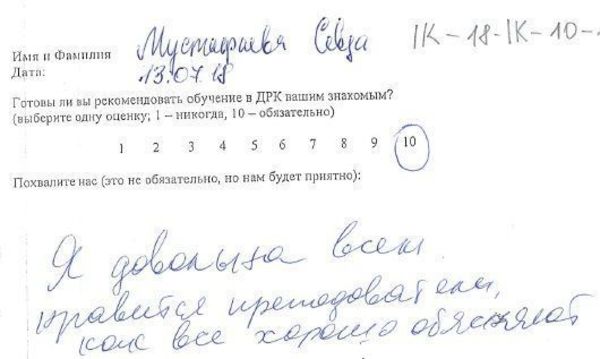 Имя и Фамилия Мустафаева Севда IK-18-IK-10-
Дата: 13.07.18
Готовы ли вы рекомендовать обучение в ДРК вашим знакомым?
(выберите одну оценку; 1 – никогда, 10 – обязательно)
1 2 3 4 5 6 7 8 9 10
Похвалите нас (это не обязательно, но нам будет приятно):
Я довольна всем
нравится преподователи,
как все хорошо обясняют